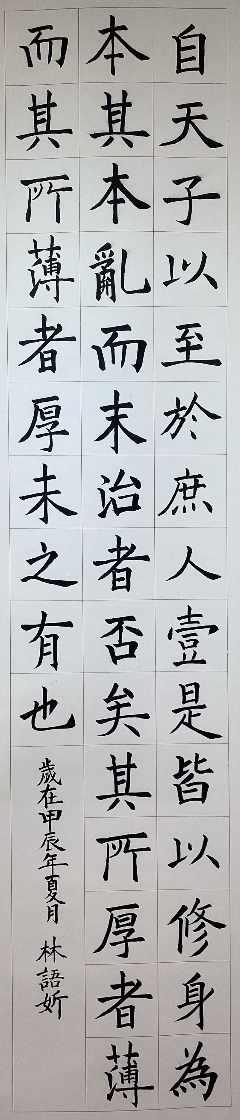 自天子以至於庶人壹是皆以修身為
本其本亂而末治者否矣其所厚者薄
而其所薄者厚未之有也
歲在甲辰年夏月 林語妡